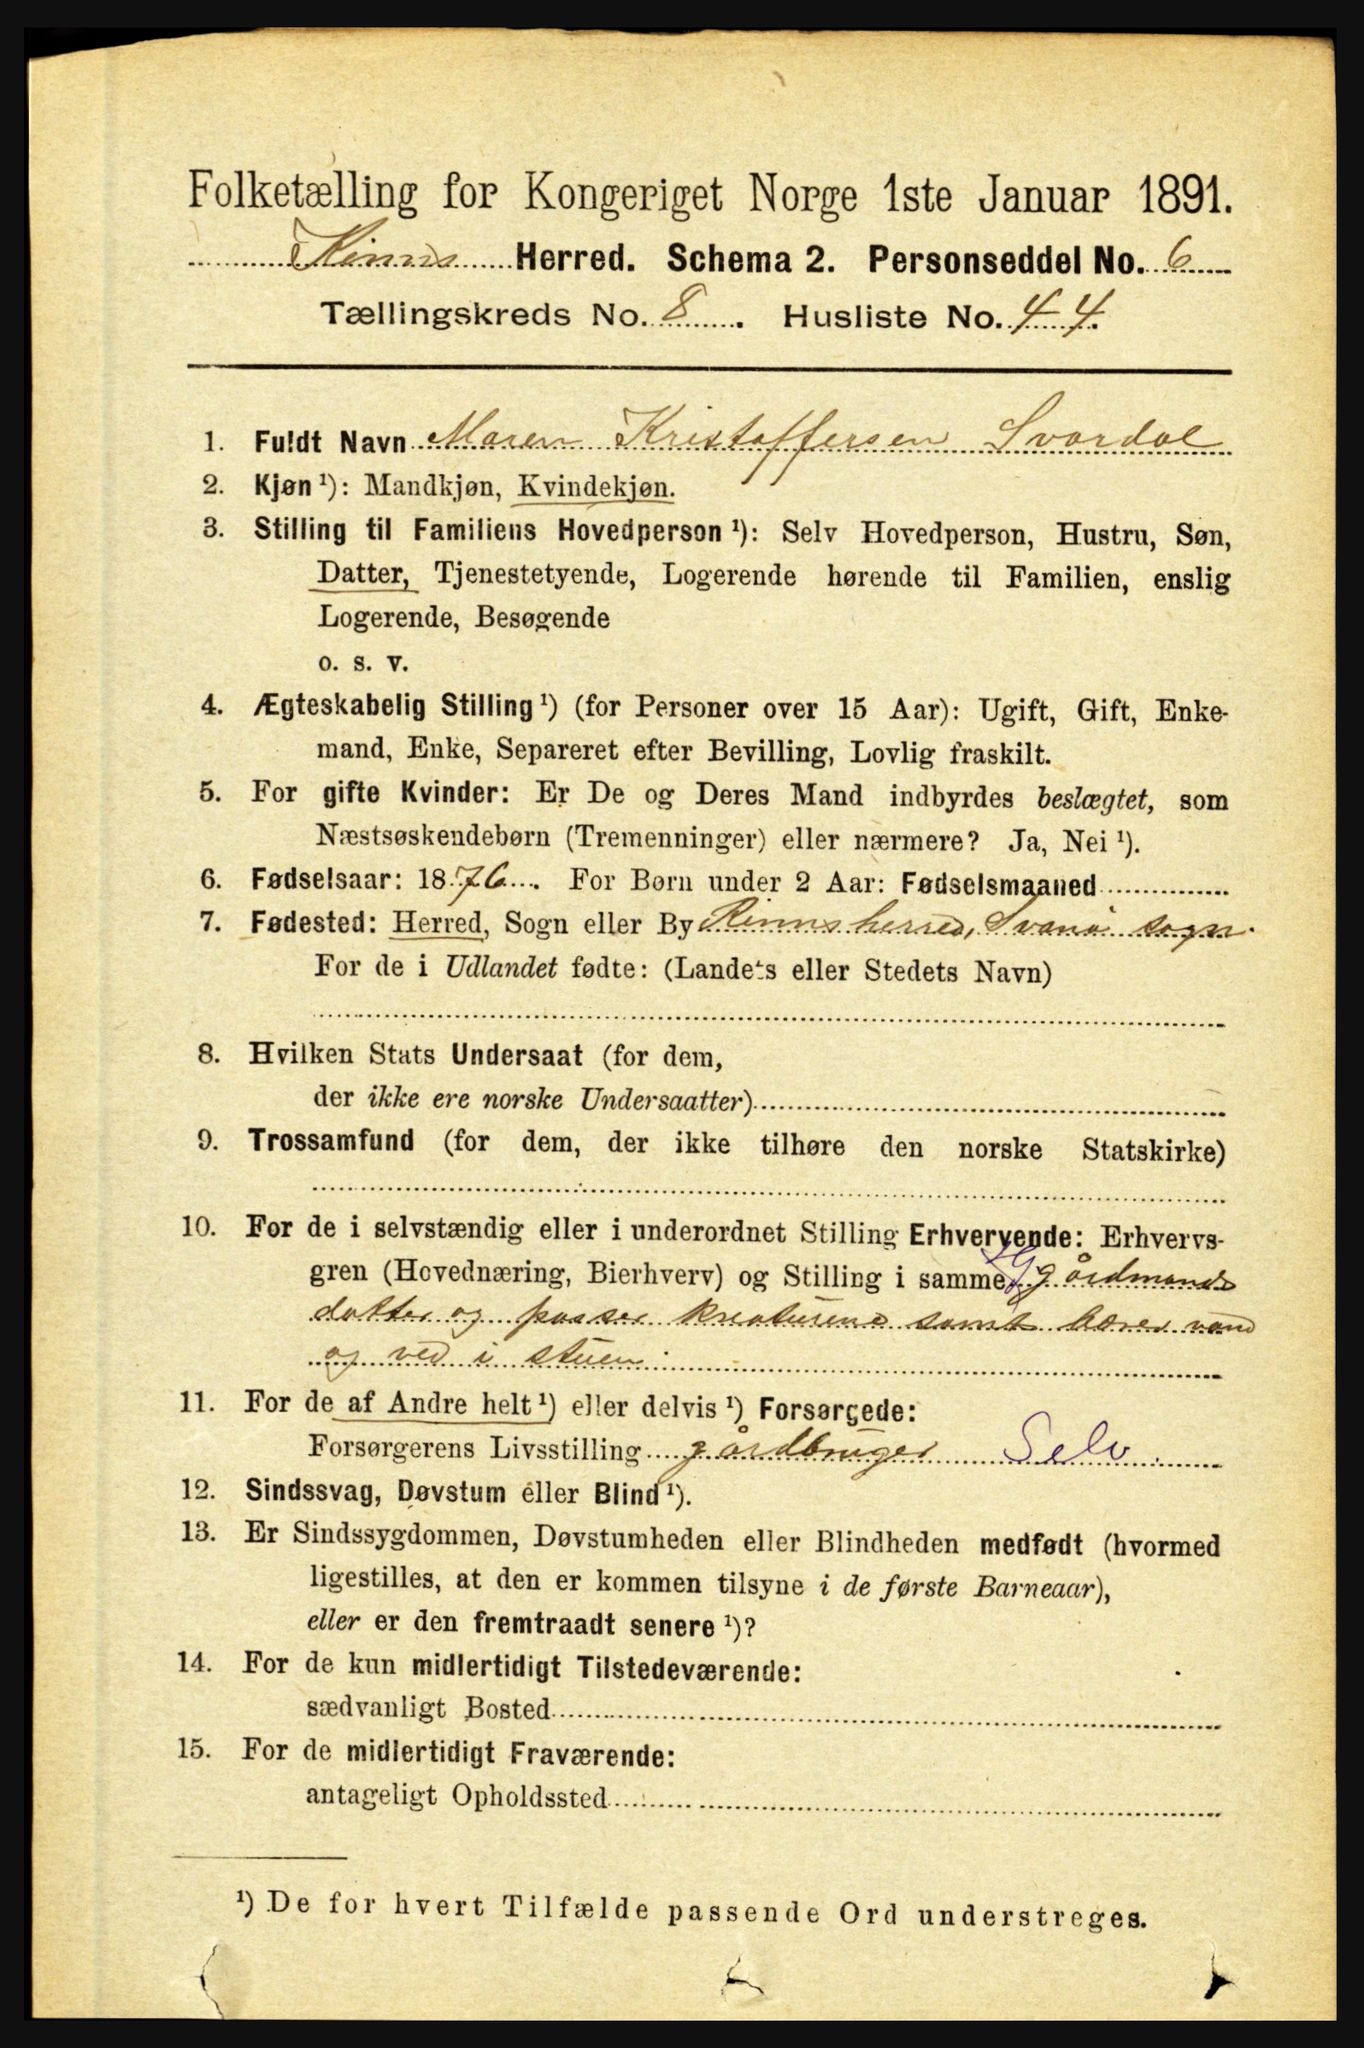 Folketælling for Kongeriget Norge 1ste Januar 1891.
Kinns Herred. Schema 2. Personseddel No. 6
Tællingskreds No. 8. Husliste No. 44.
1. Fuldt Navn Maren Kristoffersen Svardal
2. Kjøn ¹): Mandkjøn, Kvindekjøn.
3. Stilling til Familiens Hovedperson ¹): Selv Hovedperson, Hustru, Søn,
Datter, Tjenestetyende, Logerende hørende til Familien, enslig
Logerende, Besøgende
o. s. v.
4. Ægteskabelig Stilling ¹) (for Personer over 15 Aar): Ugift, Gift, Enke-
mand, Enke, Separeret efter Bevilling, Lovlig fraskilt.
5. For gifte Kvinder: Er De og Deres Mand indbyrdes beslægtet, som
Næstsøskendebørn (Tremenninger) eller nærmere? Ja, Nei ¹).
6. Fødselsaar: 1876. For Børn under 2 Aar: Fødselsmaaned
7. Fødested: Herred, Sogn eller By Kinns herred, Svanø sogn.
For de i Udlandet fødte: (Landets eller Stedets Navn)
8. Hvilken Stats Undersaat (for dem,
der ikke ere norske Undersaatter)
9. Trossamfund (for dem, der ikke tilhøre den norske Statskirke)
10. For de i selvstændig eller i underordnet Stilling Erhvervende: Erhvervs-
gren (Hovednæring, Bierhverv) og Stilling i samme gårdmands
datter og passer kreaturene samt bærer vand
og ved i stuen
11. For de af Andre helt ¹) eller delvis ¹) Forsørgede:
Forsørgerens Livsstilling gårdbruger Selv.
12. Sindssvag, Døvstum eller Blind ¹).
13. Er Sindssygdommen, Døvstumheden eller Blindheden medfødt (hvormed
ligestilles, at den er kommen tilsyne i de første Barneaar),
eller er den fremtraadt senere ¹)?
14. For de kun midlertidigt Tilstedeværende:
sædvanligt Bosted
15. For de midlertidigt Fraværende:
antageligt Opholdssted
¹) De for hvert Tilfælde passende Ord understreges.